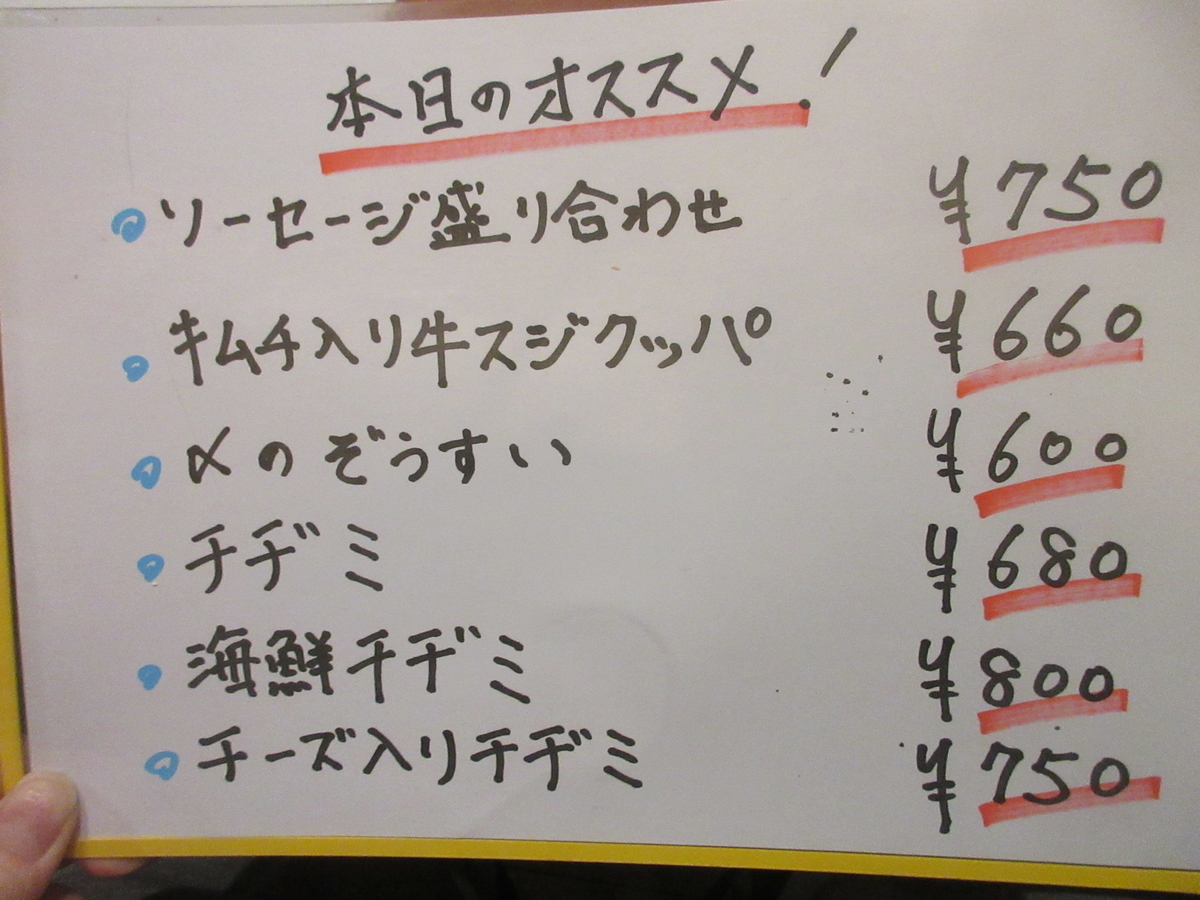 本日のオススメ!
ソーセージ盛り合わせ ¥750
キムチ入り牛スジクッパ ¥660
〆のぞうすい ¥600
チヂミ ¥680
海鮮チヂミ ¥800
チーズ入りチヂミ ¥750